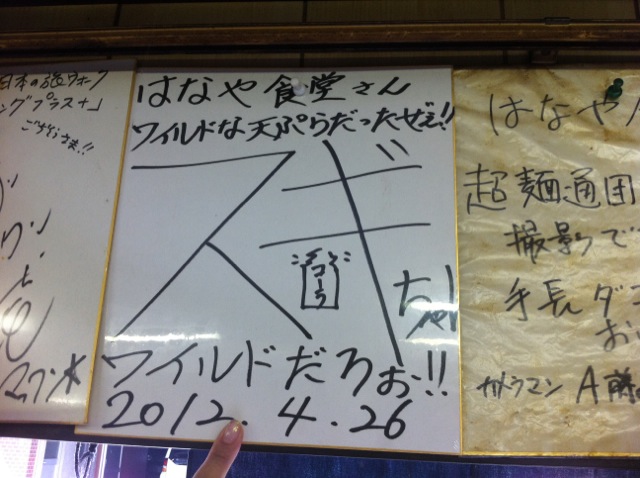 日本の旅ウォーク
ングプラス+」
ごちそうさま!!
はなや食堂さん
ワイルドな天ぷらだったぜぇ!!
スギちゃん
コーラ
ワイルドだろぉ!!
2012.4.26
はなや
超麺通団
撮影で
手長ダ
お
カメラマン A